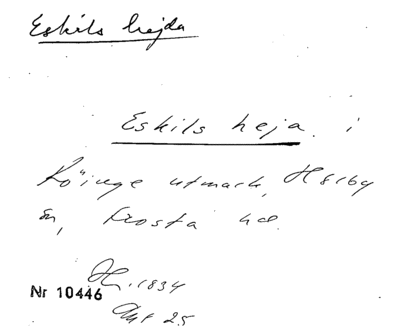 Eskils hejda
Eskils heja i
Röinge utmark, Hörby
sn, Frosta hd.
1834
Nr 10446
Akt 25